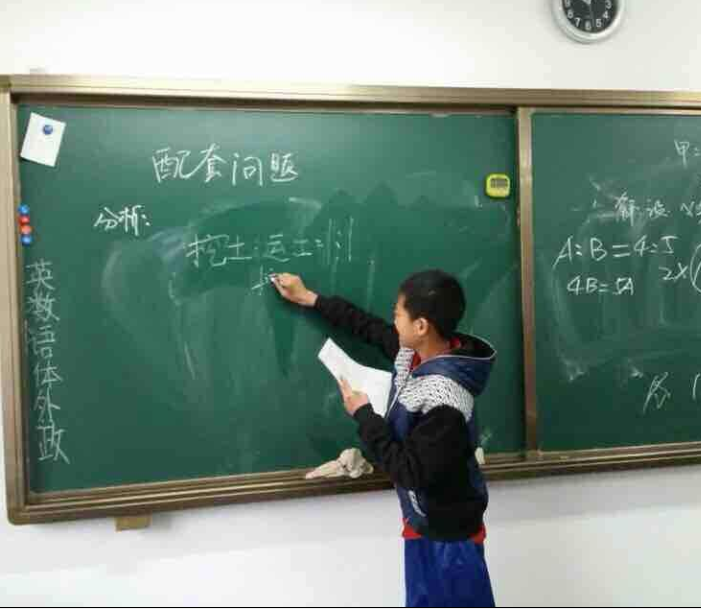 配套问题
分析:
挖土:运土=1:1
英数语体外政
A:B=4:5
4B=5A
2X(
甲:
解:设